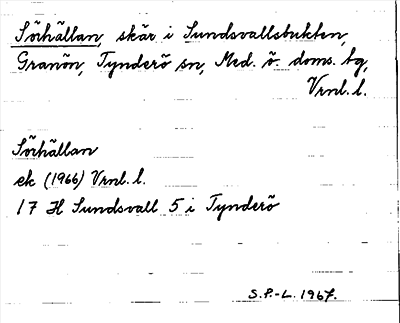 Sörhällan, skär i Sundsvallsbukten,
Granön, Tynderö sn, Med. ö. doms. tg,
Vrnl. l.
Sörhällan
ek (1966) Vrnl. l.
17 H Sundsvall 5 i Tynderö
S.P.-L. 1967.